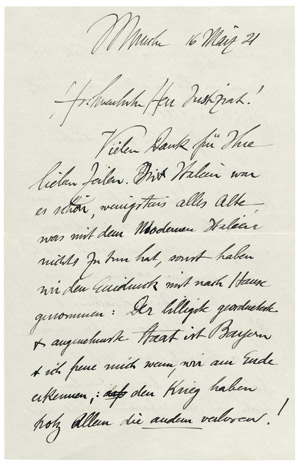 München 16 März 21
! Hochverehrter Herr Justizrat !
Vielen Dank für Ihre
lieben Zeilen. In Italien war
es schön, wenigstens alles Alte,
was mit dem Modernen Italien
nichts zu tun hat, sonst haben
wir den Eindruck mit nach Hause
genommen: Der billigste geordnetste
& angenehmste Staat ist Bayern
& ich freue mich wenn wir am Ende
erkennen, : den Krieg haben
trotz Allem die andern verloren !